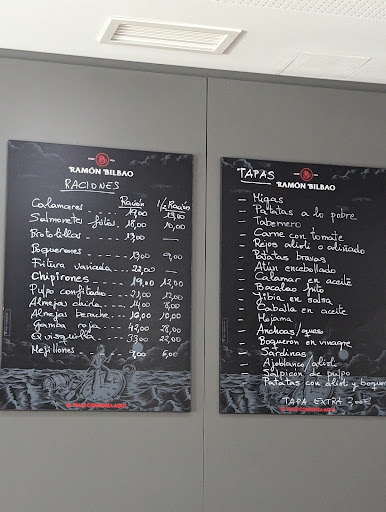 RAMÓN BILBAO
RACIONES
Ración 1/2 Ración
Calamares 19,00 13,00
Salmonetes fritos 18,00 10,00
Brotolillas 13,00 —
Boquerones 13,00 9,00
Fritura variada 22,00 —
Chipirones 19,00 12,00
Pulpo confitado 21,00 12,00
Almejas chirla 14,00 8,00
Almejas 16,00 10,00
Gamba roja 42,00 28,00
Quisquilla 33,00 22,00
Mejillones 9,00 6,00
EL VIAJE COMIENZA AQUÍ
TAPAS
RAMÓN BILBAO
- Migas
- Patatas a lo pobre
- Tabernero
- Carne con tomate
- Rejos alioli o aliñado
- Patatas bravas
- Atún encebollado
- Calamar en aceite
- Bacalao frito
- Jibia en salsa
- Caballa en aceite
- Mojama
- Anchoas/queso
- Boquerón en vinagre
- Sardinas
- Ajoblanco/alioli
- Salpicón de pulpo
- Patatas con alioli y boquerón
TAPA EXTRA 3,00€
EL VIAJE COMIENZA AQUÍ